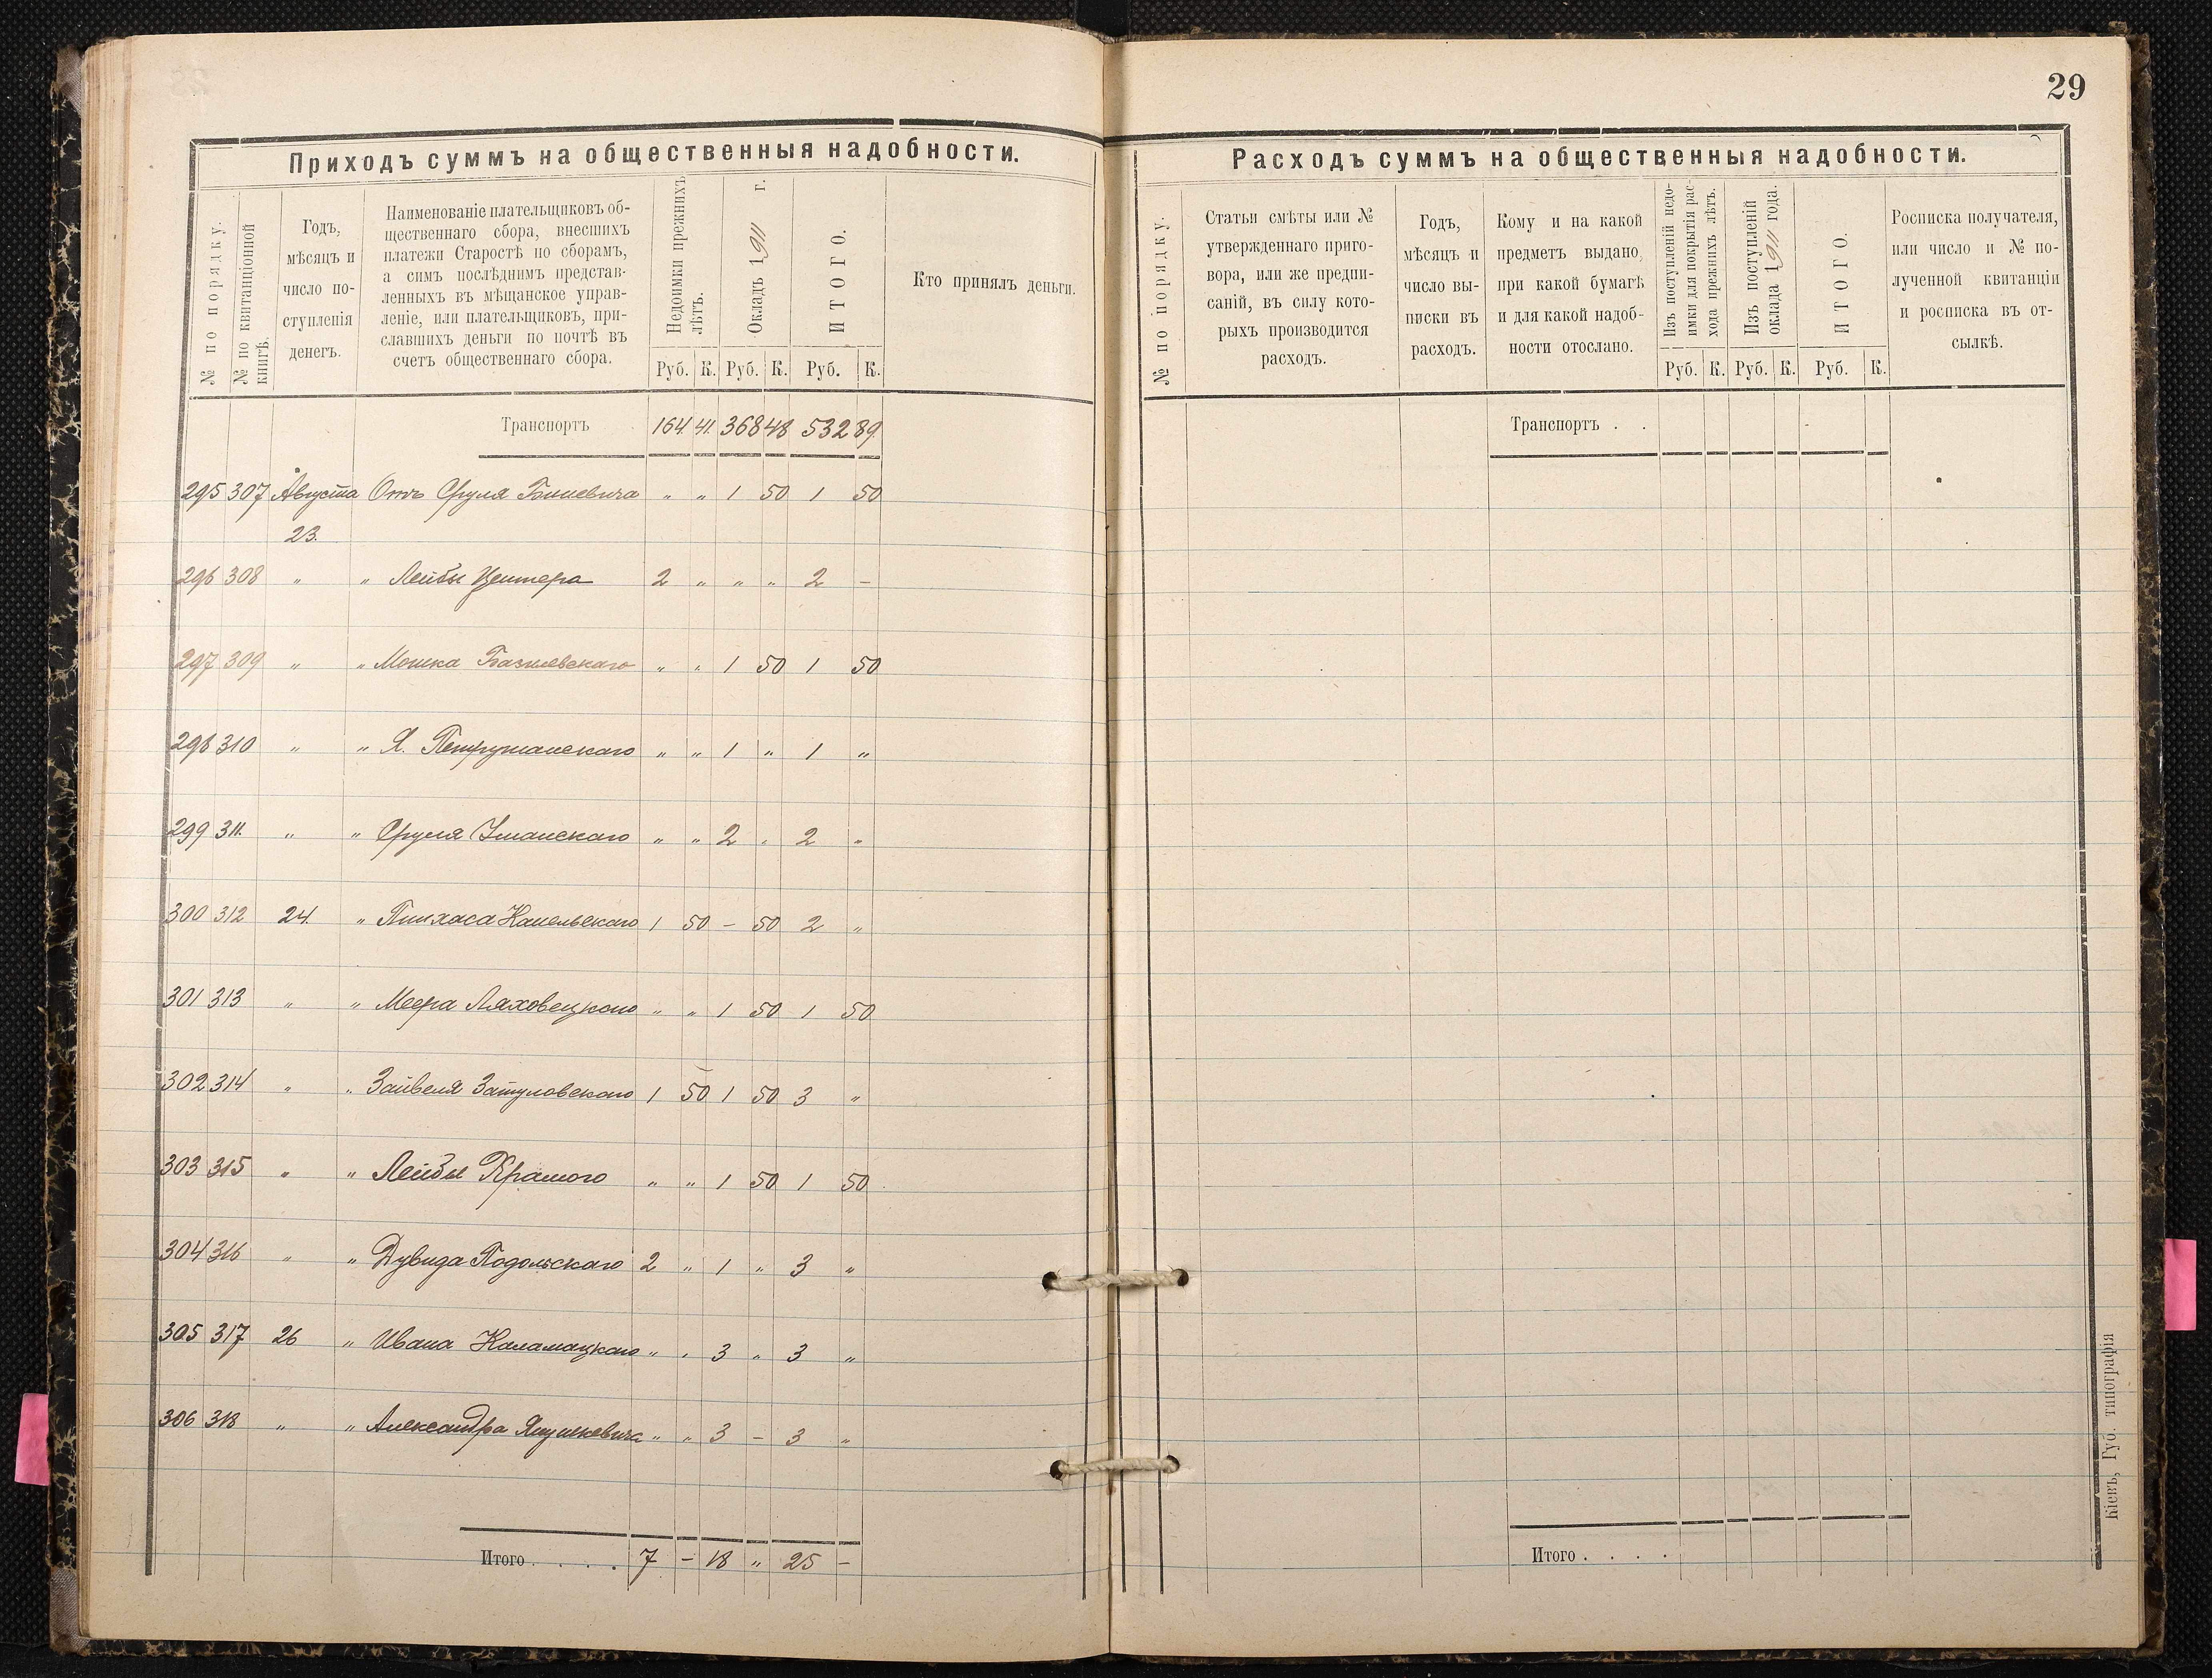 29
Приходъ суммъ на общественныя надобности.
№ по порядку.
№ по квитанціонной книгѣ.
Годъ, мѣсяцъ и число поступленія денегъ.
Наименованіе плательщиковъ об-
щественнаго сбора, внесшихъ
платежи Старостѣ по сборамъ,
а симъ послѣднимъ представ-
ленныхъ въ мѣщанское управ-
леніе, или плательщиковъ, при-
славшихъ деньги по почтѣ въ
счетъ общественнаго сбора.
Недоимки прежнихъ лѣтъ.
Окладъ 1911 г.
ИТОГО.
Кто принялъ деньги.
Руб. К. Руб. К. Руб. К.
Транспортъ 164. 41. 368 48 532 89.
295 307 Августа Отъ Сруля Биневича " " 1 50 1 50
23.
296 308 " " Лейбы Центера 2 " " " 2 –
297 309 " " Мошка Базилевскаго " " 1 50 1 50
298 310 " " Я. Петрушанскаго " " 1 " 1 "
299 311. " " Сруля Уманскаго " " 2 " 2 "
300 312 24. " Пинхаса Канельскаго 1 50 – 50 2 "
301 313 " " Меера Ляховецкаго " " 1 50 1 50
302 314 " " Зайвеля Затуловскаго 1 50 1 50 3 "
303 315 " " Лейбы Храмого " " 1 50 1 50
304 316 " " Дувида Подольскаго 2 " 1 " 3 "
305 317 26 " Ивана Каламацкаго " " 3 " 3 "
306 318 " " Александра " " 3 – 3 "
Итого . . . . . 7 – 18 " 25 –
Расходъ суммъ на общественныя надобности.
№ по порядку.
Статьи смѣты или №
утвержденнаго приго-
вора, или же предпи-
саній, въ силу кото-
рыхъ производится
расходъ.
Годъ,
мѣсяцъ и
число вы-
писки въ
расходъ.
Кому и на какой
предметъ выдано,
при какой бумагѣ
и для какой надоб-
ности отослано.
Изъ поступленій недо-
имки для покрытія рас-
хода прежнихъ лѣтъ.
Изъ поступленій
оклада 1911 года.
ИТОГО.
Росписка получателя,
или число и № по-
лученной квитанціи
и росписка въ от-
сылкѣ.
Руб. К. Руб. К. Руб. К.
Транспортъ . .
Итого . . . .
Кіевъ, Губ. типографія